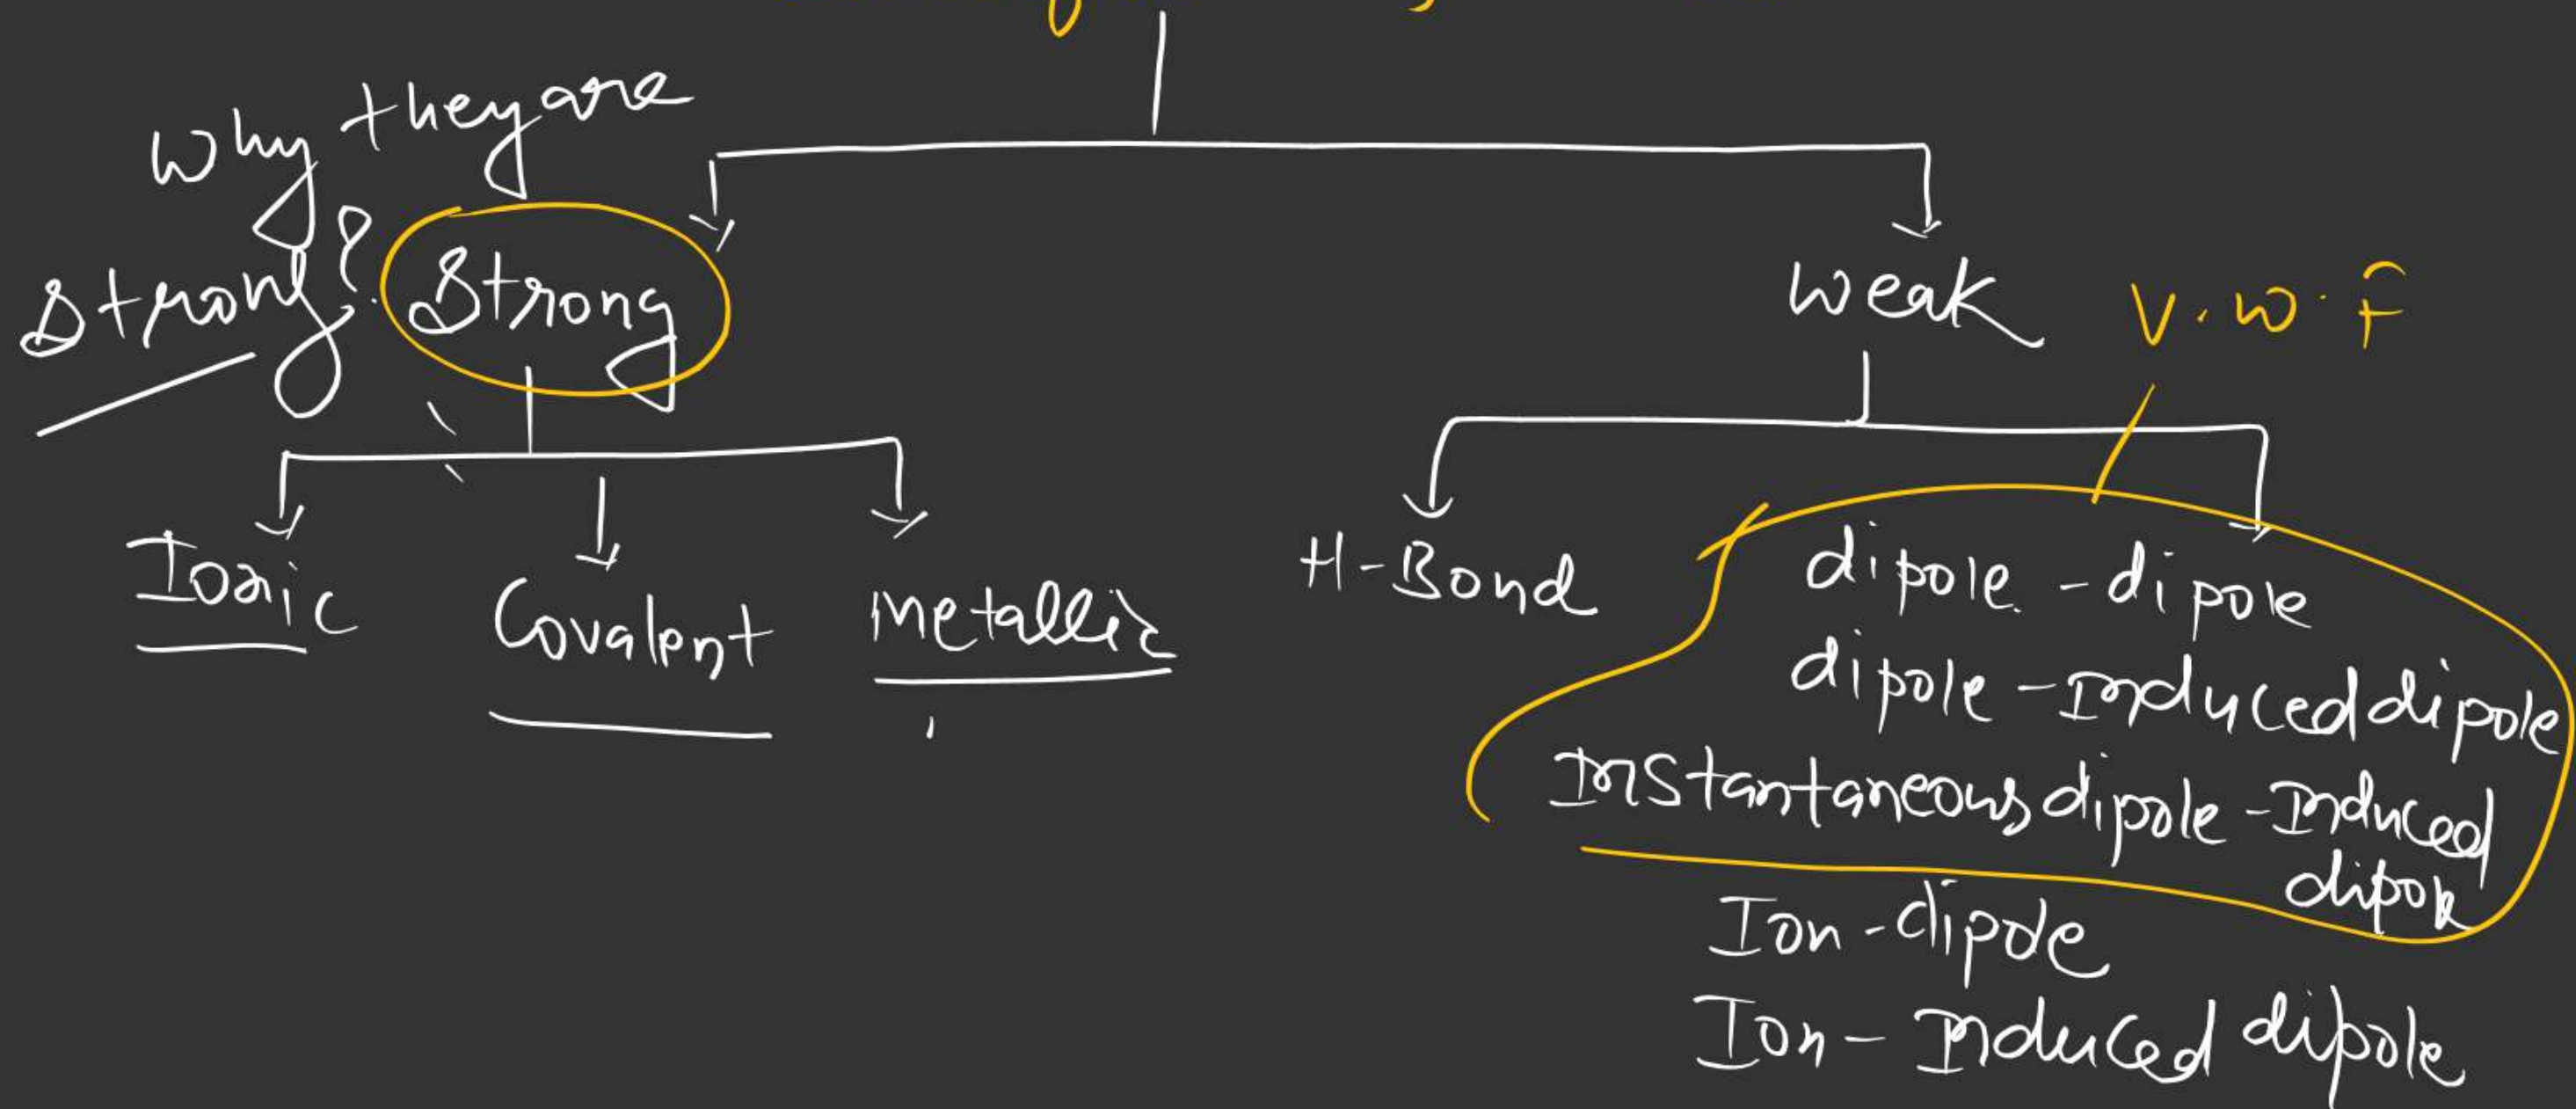 why they are
strong?
Strong
weak
V.W.F
Ionic
Covalent
Metallic
H-Bond
dipole-dipole
dipole-Induced dipole
Instantaneous dipole-Induced
dipole
Ion-dipole
Ion-Induced dipole